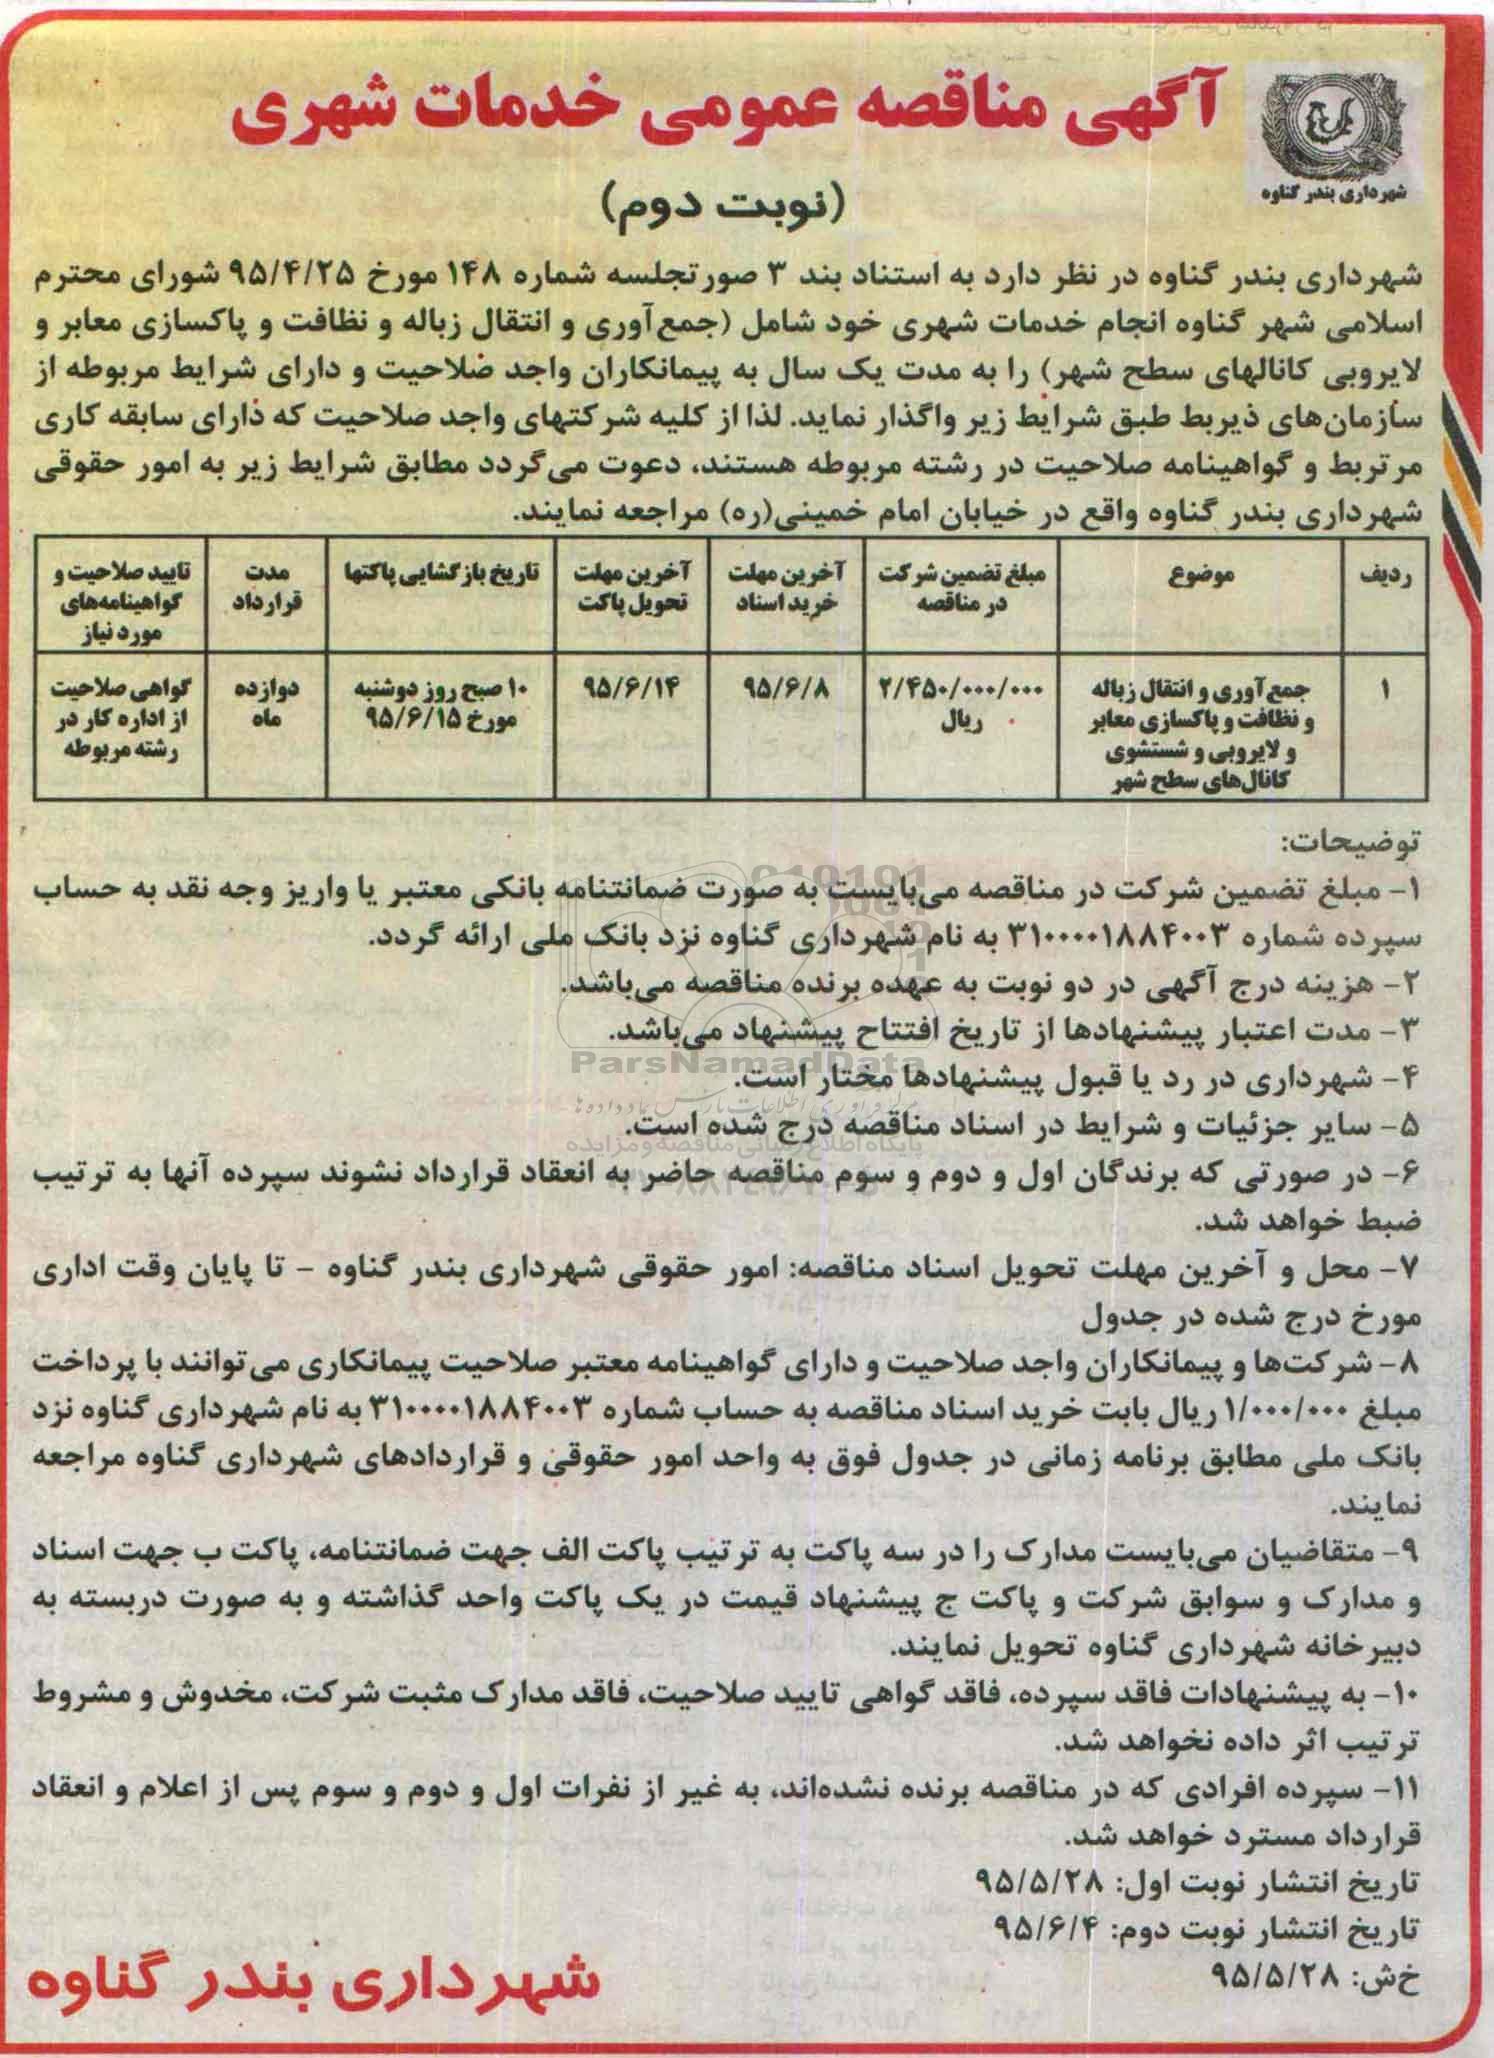 آگهی مناقصه عمومی خدمات شهری
شهرداری بندر گناوه
(نوبت دوم)
شهرداری بندر گناوه در نظر دارد به استناد بند ۳ صورتجلسه شماره ۱۴۸ مورخ ۹۵/۴/۲۵ شورای محترم
اسلامی شهر گناوه انجام خدمات شهری خود شامل (جمع‌آوری و انتقال زباله و نظافت و پاکسازی معابر و
لایروبی کانالهای سطح شهر) را به مدت یک سال به پیمانکاران واجد صلاحیت و دارای شرایط مربوطه از
سازمان‌های ذیربط طبق شرایط زیر واگذار نماید. لذا از کلیه شرکتهای واجد صلاحیت که دارای سابقه کاری
مرتبط و گواهینامه صلاحیت در رشته مربوطه هستند، دعوت می‌گردد مطابق شرایط زیر به امور حقوقی
شهرداری بندر گناوه واقع در خیابان امام خمینی(ره) مراجعه نمایند.
ردیف
موضوع
مبلغ تضمین شرکت
در مناقصه
آخرین مهلت
خرید اسناد
آخرین مهلت
تحویل پاکت
تاریخ بازگشایی پاکتها
مدت
قرارداد
تایید صلاحیت و
گواهینامه‌های
مورد نیاز
۱
جمع‌آوری و انتقال زباله
و نظافت و پاکسازی معابر
و لایروبی و شستشوی
کانال‌های سطح شهر
۲/۴۵۰/۰۰۰/۰۰۰
ریال
۹۵/۶/۸
۹۵/۶/۱۴
۱۰ صبح روز دوشنبه
مورخ ۹۵/۶/۱۵
دوازده
ماه
گواهی صلاحیت
از اداره کار در
رشته مربوطه
توضیحات:
۱- مبلغ تضمین شرکت در مناقصه می‌بایست به صورت ضمانتنامه بانکی معتبر یا واریز وجه نقد به حساب
سپرده شماره ۳۱۰۰۰۰۱۸۸۴۰۰۳ به نام شهرداری گناوه نزد بانک ملی ارائه گردد.
۲- هزینه درج آگهی در دو نوبت به عهده برنده مناقصه می‌باشد.
۳- مدت اعتبار پیشنهادها از تاریخ افتتاح پیشنهاد می‌باشد.
ParsNamadData
۴- شهرداری در رد یا قبول پیشنهادها مختار است.
۵- سایر جزئیات و شرایط در اسناد مناقصه درج شده است.
پایگاه اطلاع رسانی مناقصه و مزایده
۶- در صورتی که برندگان اول و دوم و سوم مناقصه حاضر به انعقاد قرارداد نشوند سپرده آنها به ترتیب
ضبط خواهد شد.
۷- محل و آخرین مهلت تحویل اسناد مناقصه: امور حقوقی شهرداری بندر گناوه - تا پایان وقت اداری
مورخ درج شده در جدول
۸- شرکت‌ها و پیمانکاران واجد صلاحیت و دارای گواهینامه معتبر صلاحیت پیمانکاری می‌توانند با پرداخت
مبلغ ۱/۰۰۰/۰۰۰ ریال بابت خرید اسناد مناقصه به حساب شماره ۳۱۰۰۰۰۱۸۸۴۰۰۳ به نام شهرداری گناوه نزد
بانک ملی مطابق برنامه زمانی در جدول فوق به واحد امور حقوقی و قراردادهای شهرداری گناوه مراجعه
نمایند.
۹- متقاضیان می‌بایست مدارک را در سه پاکت به ترتیب پاکت الف جهت ضمانتنامه، پاکت ب جهت اسناد
و مدارک و سوابق شرکت و پاکت ج پیشنهاد قیمت در یک پاکت واحد گذاشته و به صورت دربسته به
دبیرخانه شهرداری گناوه تحویل نمایند.
۱۰- به پیشنهادات فاقد سپرده، فاقد گواهی تایید صلاحیت، فاقد مدارک مثبت شرکت، مخدوش و مشروط
ترتیب اثر داده نخواهد شد.
۱۱- سپرده افرادی که در مناقصه برنده نشده‌اند، به غیر از نفرات اول و دوم و سوم پس از اعلام و انعقاد
قرارداد مسترد خواهد شد.
تاریخ انتشار نوبت اول: ۹۵/۵/۲۸
تاریخ انتشار نوبت دوم: ۹۵/۶/۴
خ‌ش: ۹۵/۵/۲۸
شهرداری بندر گناوه